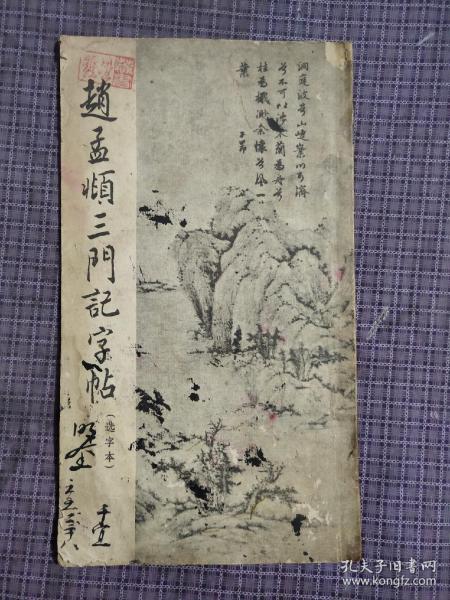 趙孟頫三門記字帖
（选字本）
洞庭波兮山崨嶪川可濟
兮不可以涉木蘭為舟兮
桂為檝渺余懷兮風一
葉
子昂
孔夫子旧书网
www.kongfz.com